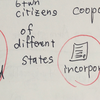 btwn
citizens
of
different
states
coop
incorpor